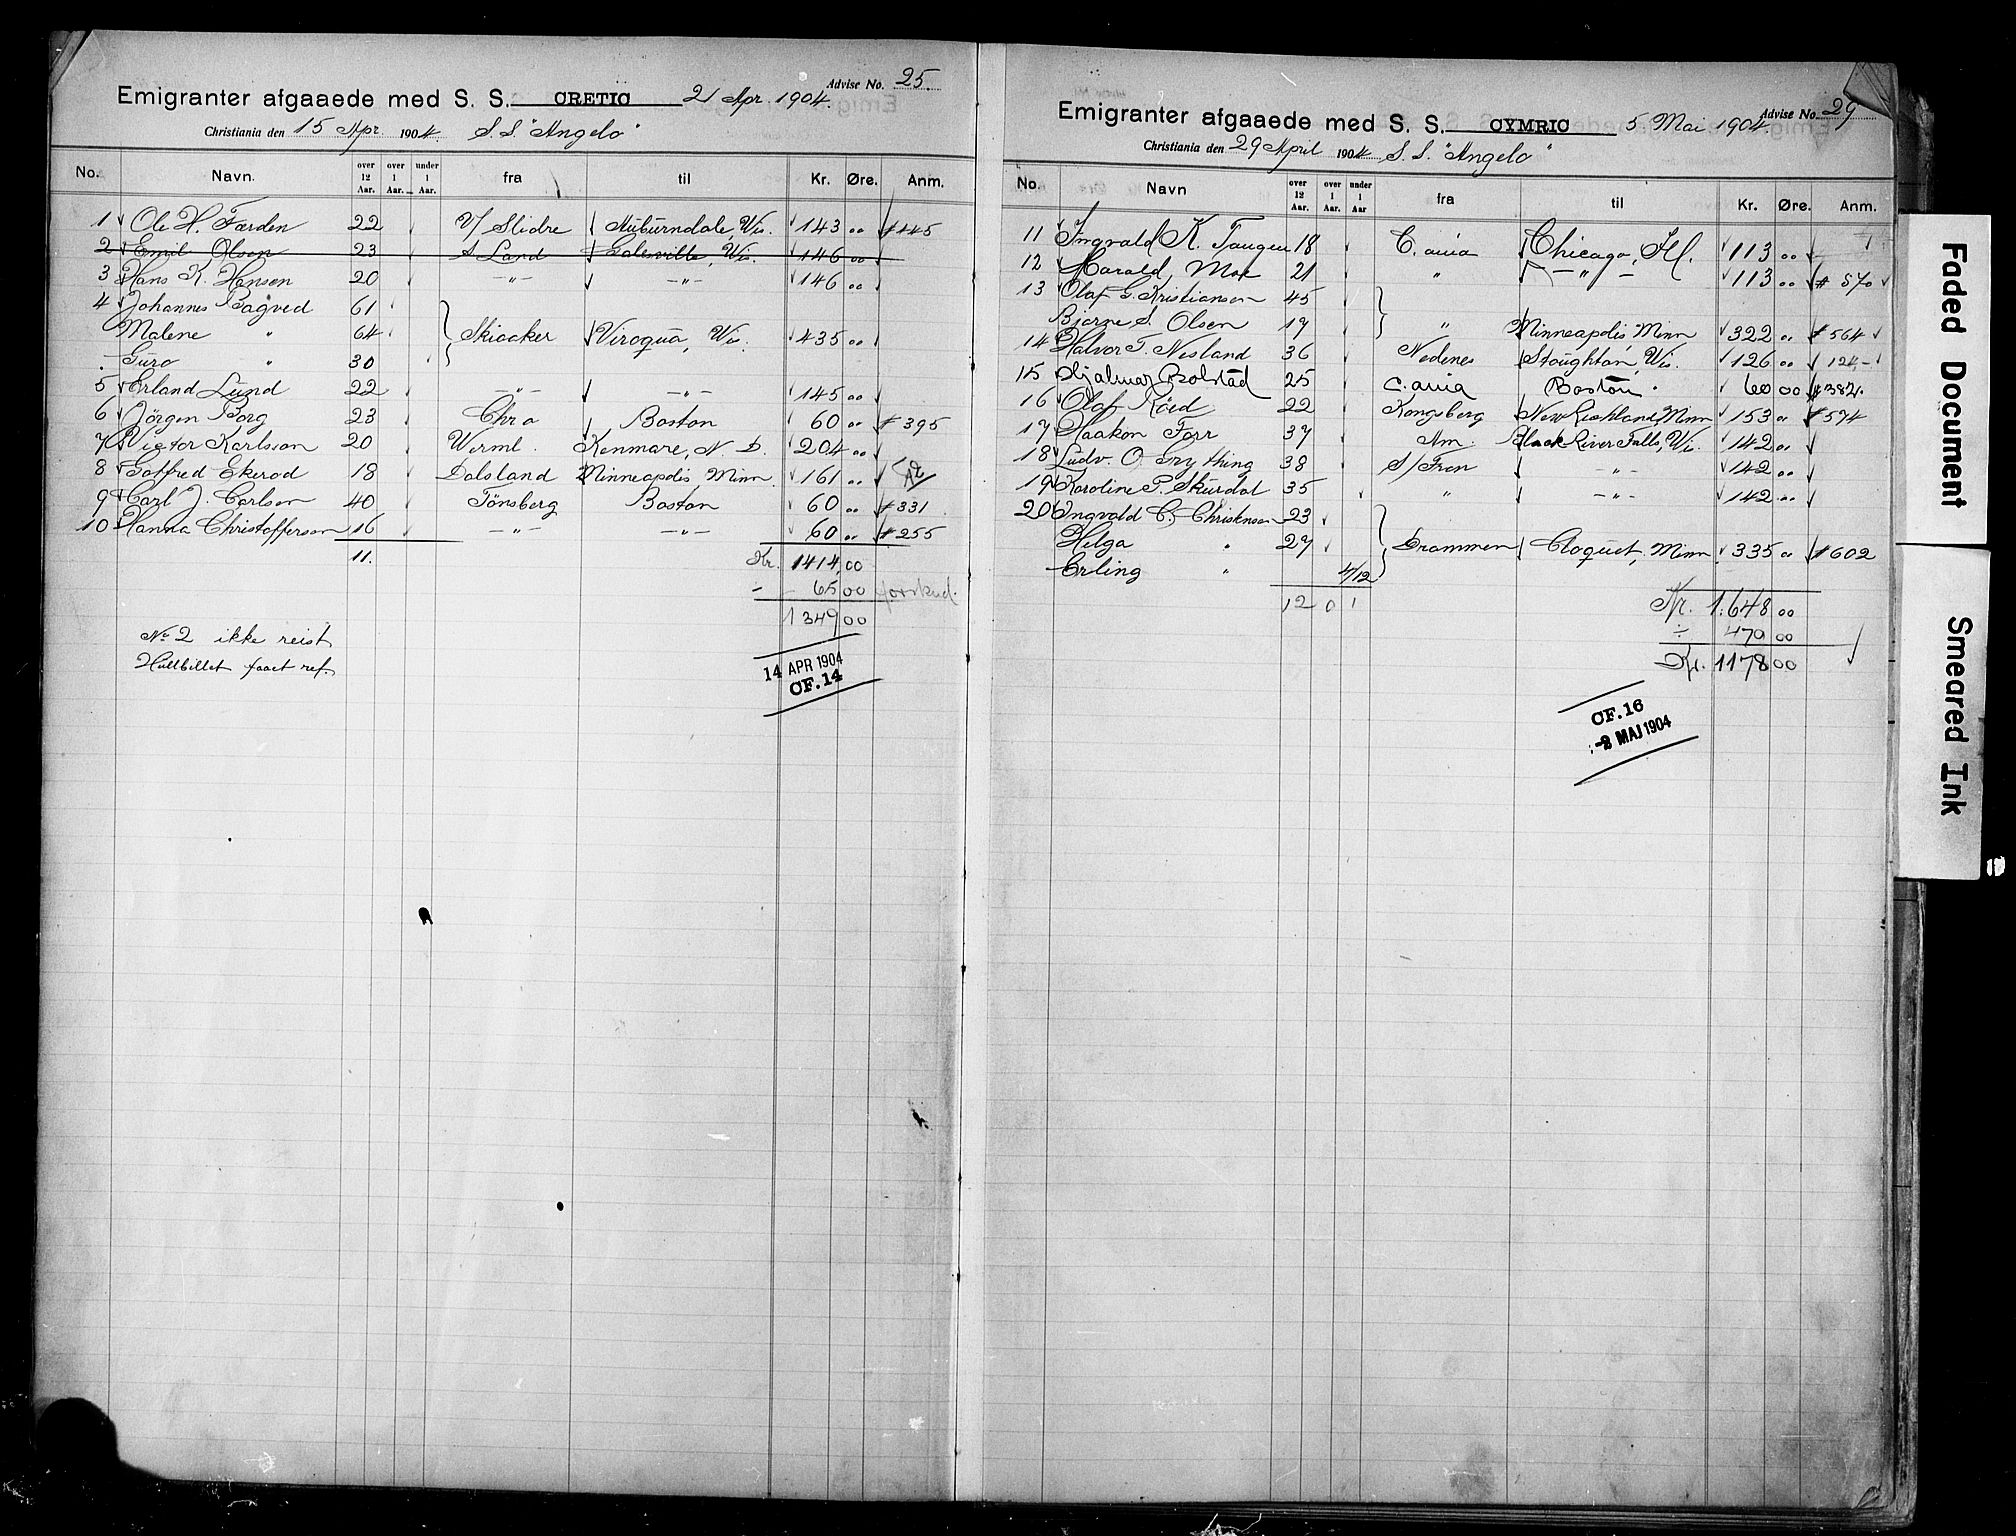 Advise No. 25
Emigranter afgaaede med S. S. CRETIC 21 Apr. 1904.
Christiania den 15 Apr. 1904 S.S. "Angelo"
No. Navn. over 12 Aar. over 1 Aar. under 1 Aar. fra til Kr. Øre. Anm.
1 Ole H. Færden 22 V/ Slidre Auburndale, Wis. 143 00 # 445
2 Emil Olsen 23 S Land Galesville, Wis. 146 00
3 Hans K. Hansen 20 -"- -"- 146 00
4 Johannes Bagved 61
Malene " 64 Skiaaker Viroqua, Wis. 435 00
Guro " 30
5 Erland Lund 22 -"- -"- 145 00
6 Jörgen Borg 23 Chra Boston 60 00 # 395
7 Victor Karlsson 20 Werml. Kenmare, N. D. 204 00
8 Gotfred Ekerod 18 Dalsland Minneapolis Minn. 161 00
9 Carl J. Carlson 40 Tönsberg Boston 60 00 # 331
10 Hanna Christofferson 16 -"- -"- 60 00 # 255
11. Kr. 1414,00
- 65 00 forskud.
1349 00
No 2 ikke reist
Hullbillet faaet ref.
14 APR 1904
CF. 14
Advise No. 29
Emigranter afgaaede med S. S. CYMRIC 5 Mai 1904.
Christiania den 29 April 1904 S. S. "Angelo"
No. Navn over 12 Aar. over 1 Aar. under 1 Aar fra til Kr. Øre. Anm.
11 Ingvald K. Taugen 18 C.ania Chicago, Ill. 113 00
12 Harald Moe 21 " -"- 113 00 # 570
13 Olaf G. Kristiansen 45
Bjarne S. Olsen 19 " Minneapolis Minn 322 00 # 564
14 Halvor T. Nesland 36 Nedenes Stoughton, Wis. 126 00 124-
15 Hjalmar Bolstad 25 C.ania Boston 60 00 # 382.
16 Olaf Röed 22 Kongsberg New Richland, Minn 153 00 # 574
17 Haakon Forr 37 Am. Black River Falls, Wis. 142 00
18 Ludv. O. Frything 38 S/Fron -"- 142 00
19 Karoline P. Skurdal 35 " -"- 142 00
20 Ingvald C. Christensen 23
Helga " 27 Drammen Cloquet, Minn. 335 00 # 602
Erling " 4/12
12 0 1 Kr. 1.648 00
÷ 470 00
Kr. 1178 00
CF. 16
-2 MAJ 1904
Faded Document
Smeared Ink